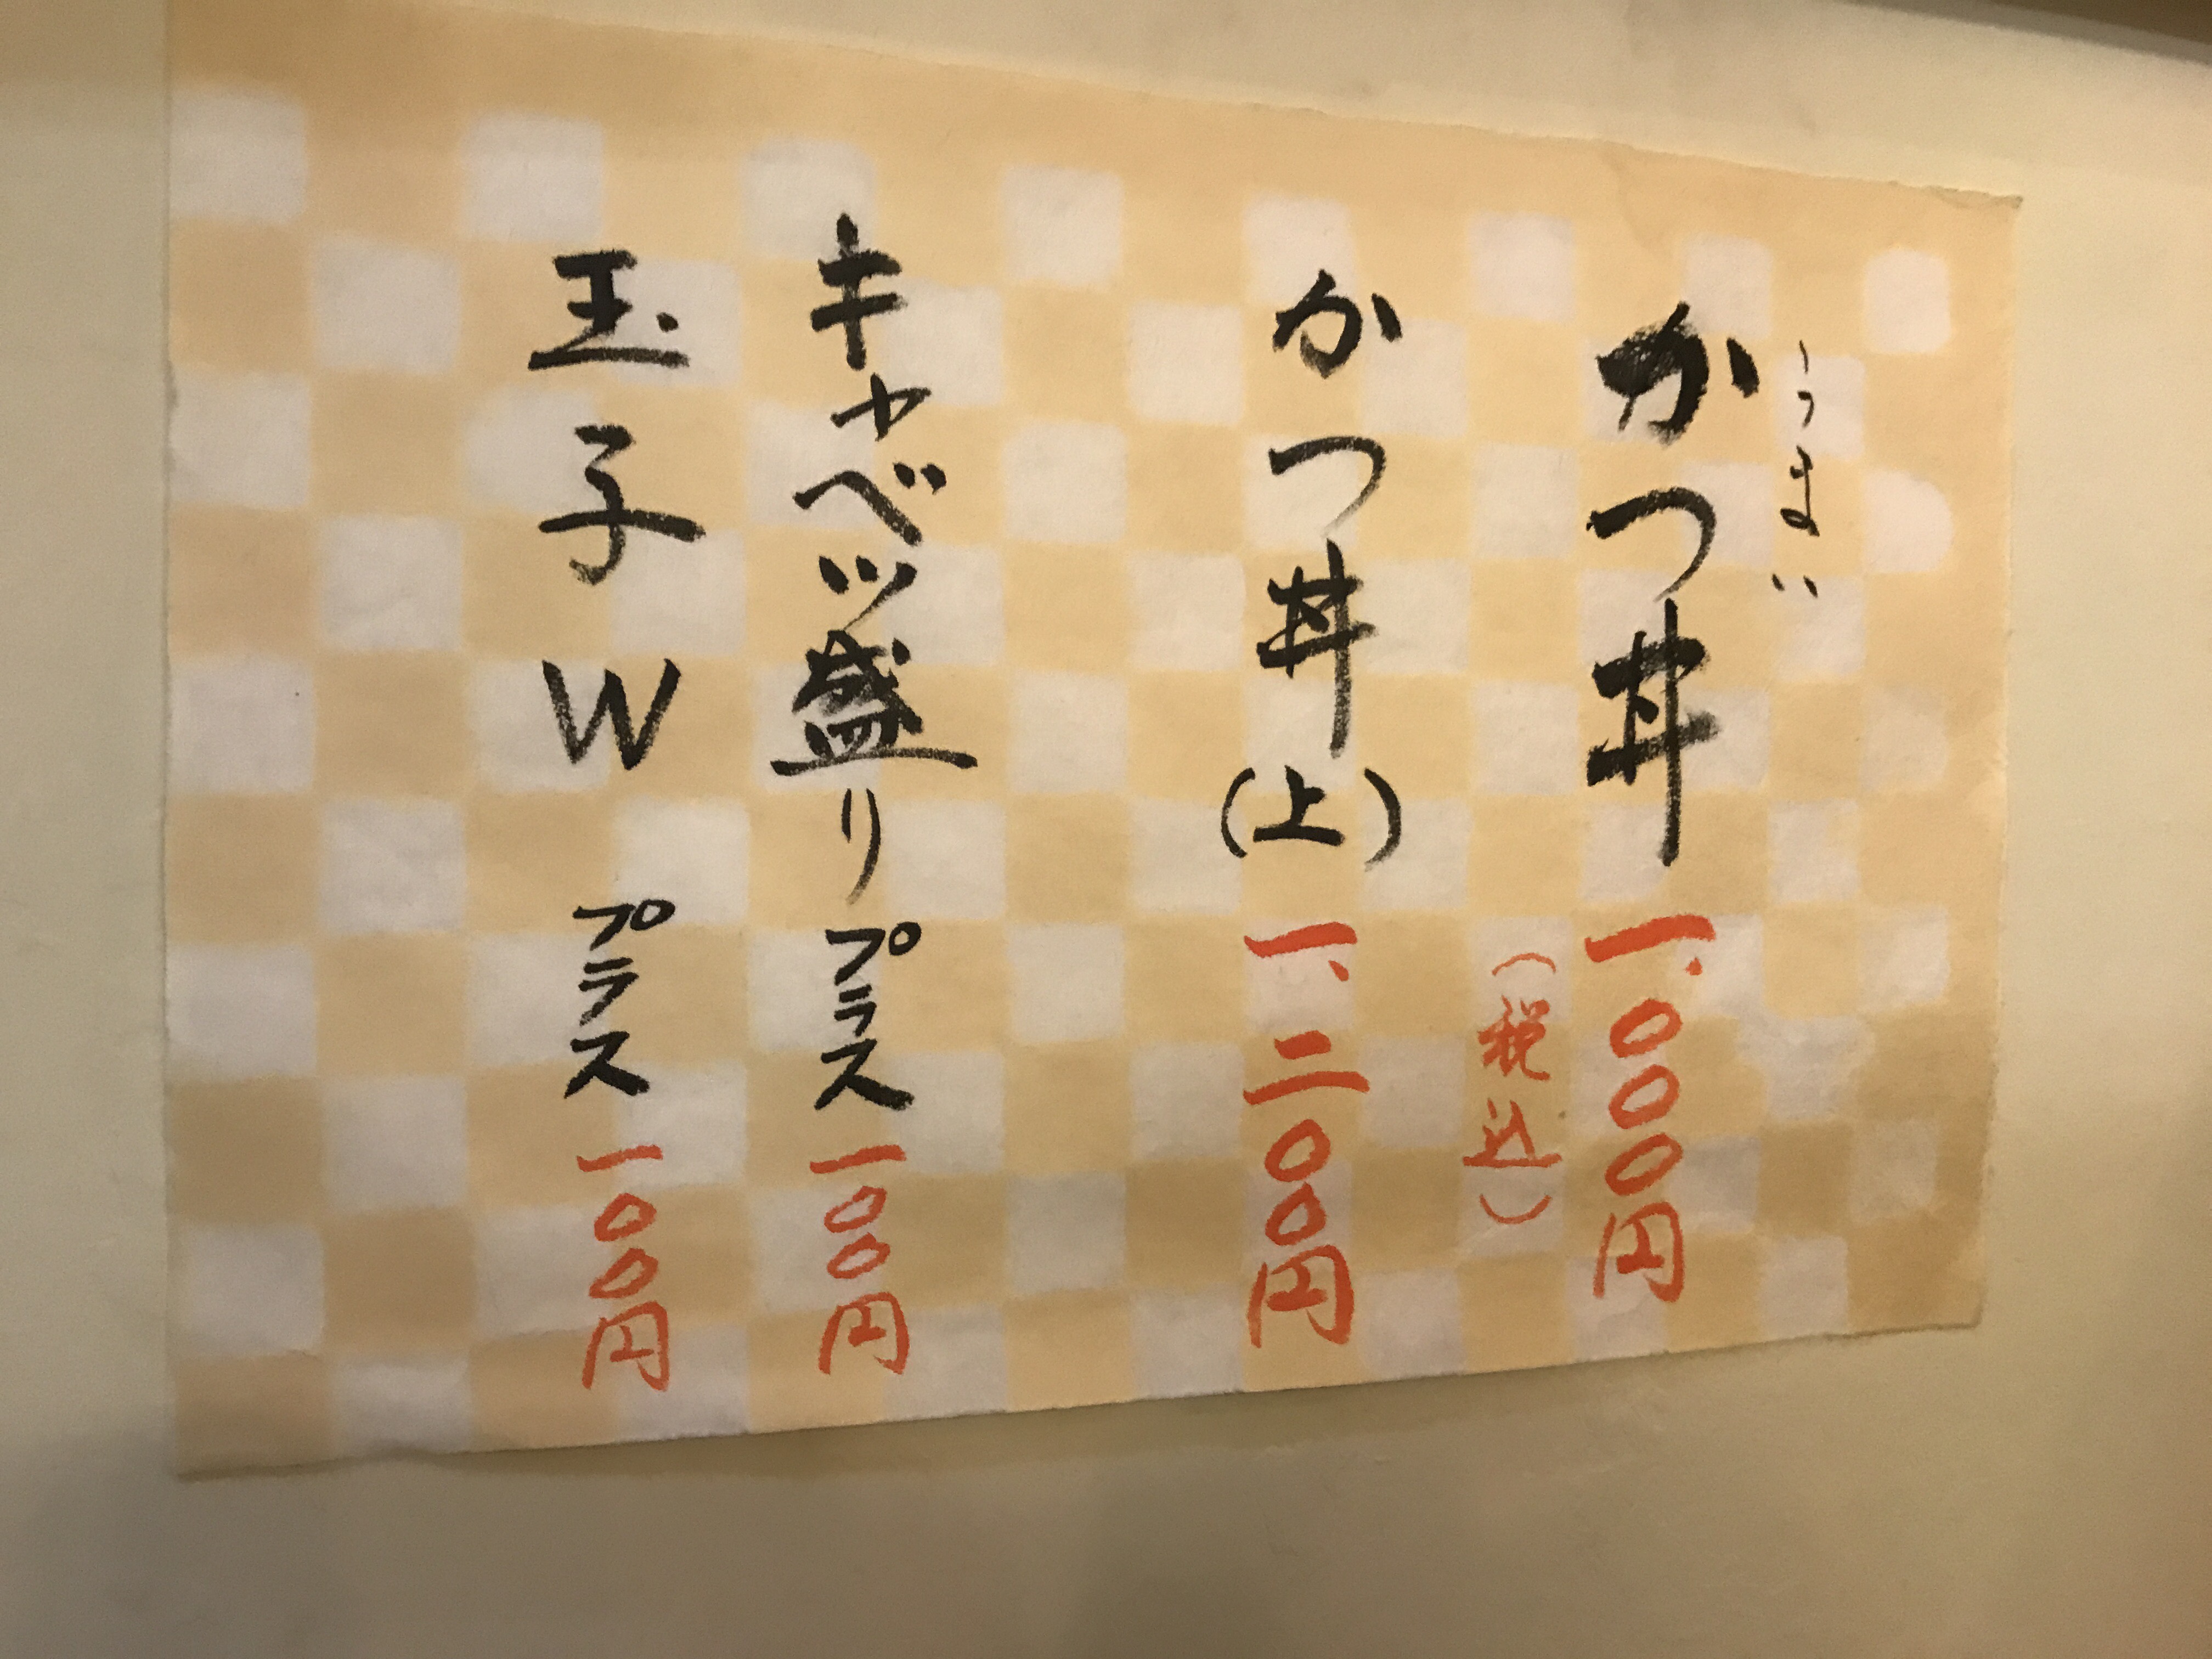 うまい
かつ丼 一、〇〇〇円
(税込)
かつ丼(上) 一、二〇〇円
キャベツ盛り プラス 一〇〇円
玉子W プラス 一〇〇円